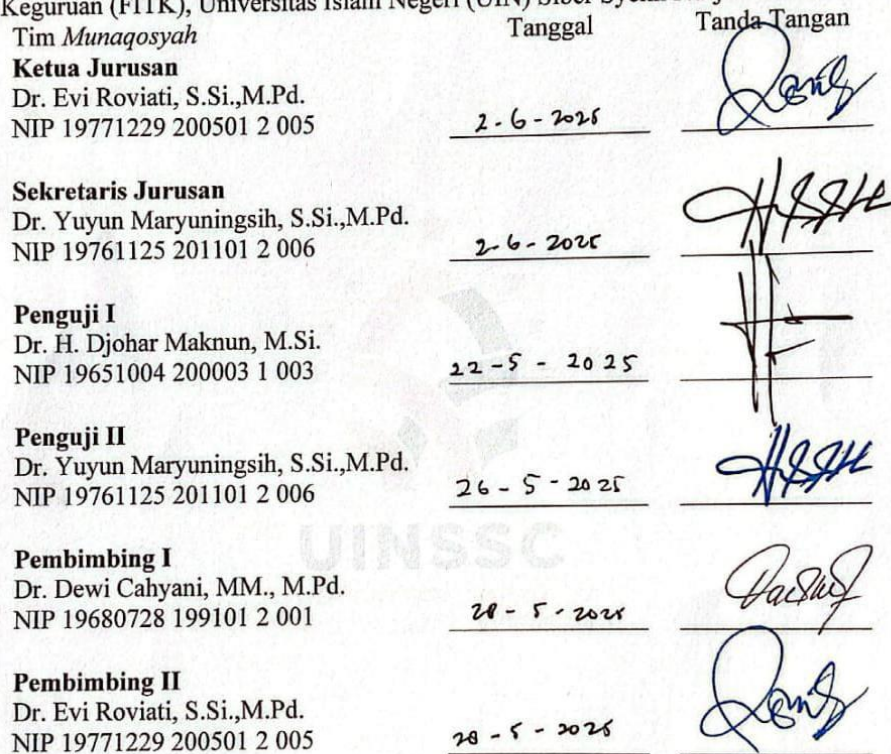 Keguruan (FITK), Universitas Islam Negeri (UIN) Siber
Tim Munaqosyah Tanggal Tanda Tangan
Ketua Jurusan
Dr. Evi Roviati, S.Si.,M.Pd.
NIP 19771229 200501 2 005 2-6-2025
Sekretaris Jurusan
Dr. Yuyun Maryuningsih, S.Si.,M.Pd.
NIP 19761125 201101 2 006 2-6-2025
Penguji I
Dr. H. Djohar Maknun, M.Si.
NIP 19651004 200003 1 003 22-5-2025
Penguji II
Dr. Yuyun Maryuningsih, S.Si.,M.Pd.
NIP 19761125 201101 2 006 26-5-2025
UINSSC
Pembimbing I
Dr. Dewi Cahyani, MM., M.Pd.
NIP 19680728 199101 2 001 28-5-2025
Pembimbing II
Dr. Evi Roviati, S.Si.,M.Pd.
NIP 19771229 200501 2 005 28-5-2025